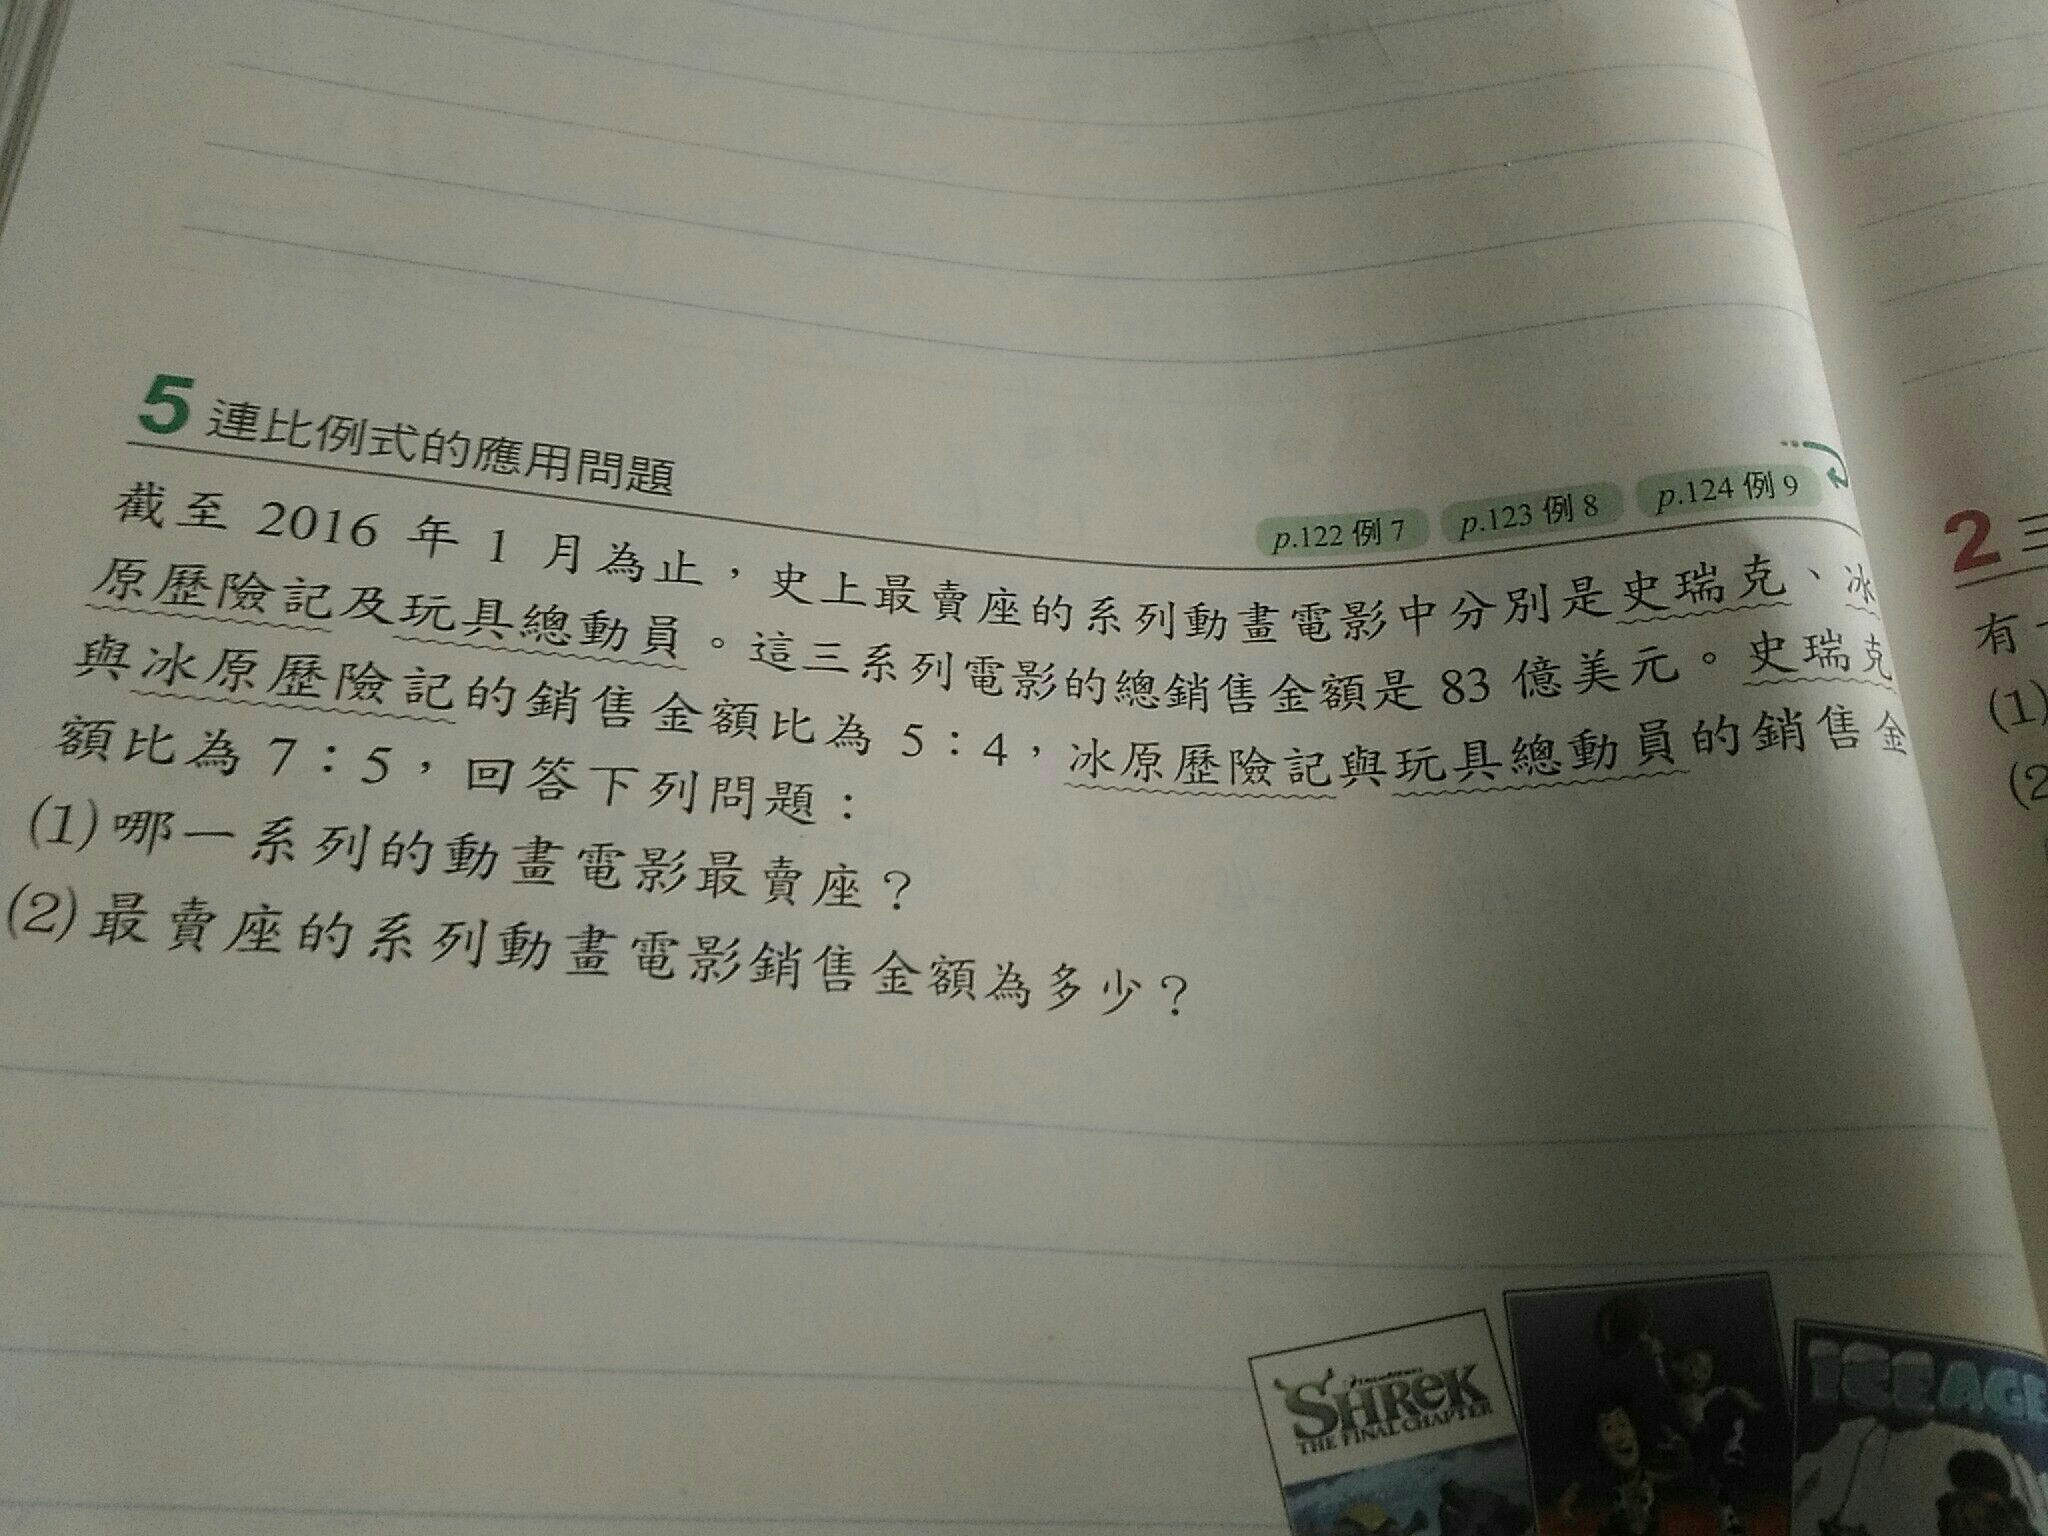 5 連比例式的應用問題
p.122 例 7 p.123 例 8 p.124 例 9
截至 2016 年 1 月為止，史上最賣座的系列動畫電影中分別是史瑞克、冰
原歷險記及玩具總動員。這三系列電影的總銷售金額是 83 億美元。史瑞克
與冰原歷險記的銷售金額比為 5：4，冰原歷險記與玩具總動員的銷售金
額比為 7：5，回答下列問題：
(1)哪一系列的動畫電影最賣座？
(2)最賣座的系列動畫電影銷售金額為多少？
DREAMWORKS
SHREK
THE FINAL CHAPTER
ICE AGE
2 三
有
(1)
(2